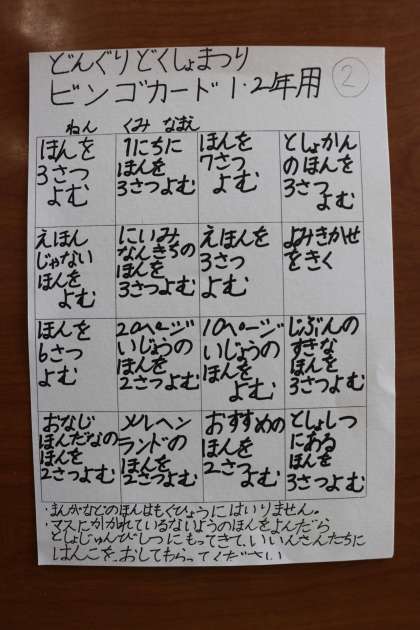 どんぐりどくしょまつり
ビンゴカード 1・2年用 ②
ねん くみ なまえ
ほんを
3さつ
よむ
1にちに
ほんを
3さつよむ
ほんを
7さつ
よむ
としょかん
のほんを
3さつ
よむ
えほん
じゃない
ほんを
よむ
にいみ
なんきちの
ほんを
3さつよむ
えほんを
3さつ
よむ
よみきかせ
をきく
ほんを
6さつ
よむ
20ページ
いじょうの
ほんを
2さつよむ
10ページ
いじょうの
ほんを
よむ
じぶんの
すきな
ほんを
3さつよむ
おなじ
ほんだなの
ほんを
2さつよむ
メルヘン
ランドの
ほんを
2さつよむ
おすすめの
ほんを
2さつ
よむ
としょしつ
にある
ほんを
3さつよむ
・まんがなどのほんはもくひょうにはいりません。
・マスにかかれているないようのほんをよんだら
としょじゅんびしつにもってきて、いいんさんたちに
はんこを、おしてもらってください